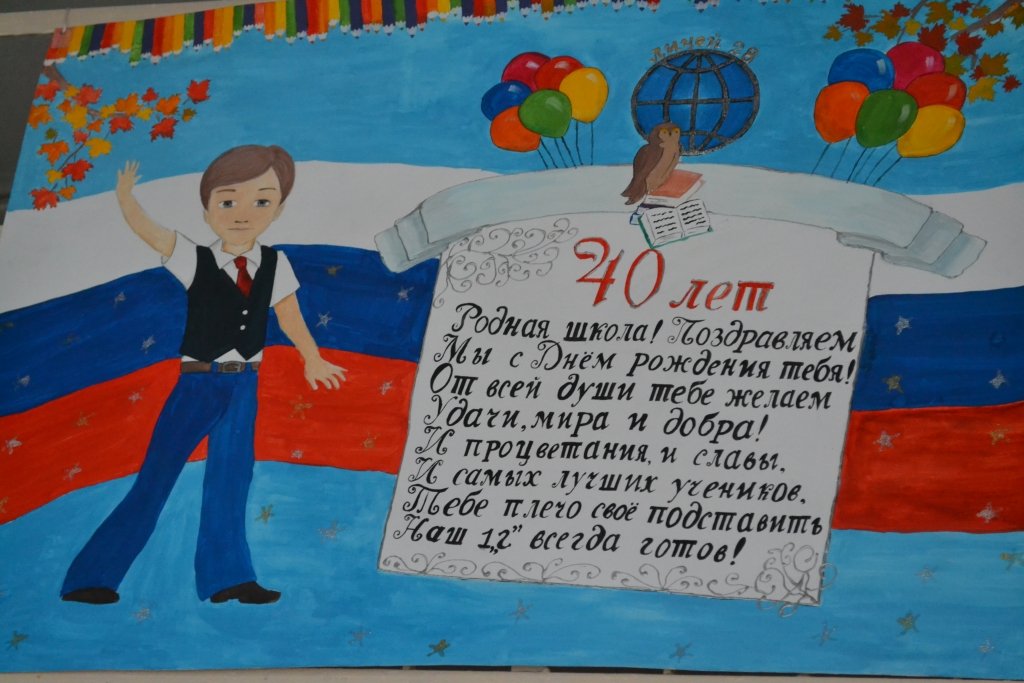 лицей 28
40 лет
Родная школа! Поздравляем
Мы с Днём рождения тебя!
От всей души тебе желаем
Удачи, мира и добра!
И процветания, и славы,
И самых лучших учеников.
Тебе плечо своё подставить
Наш 1„г” всегда готов!